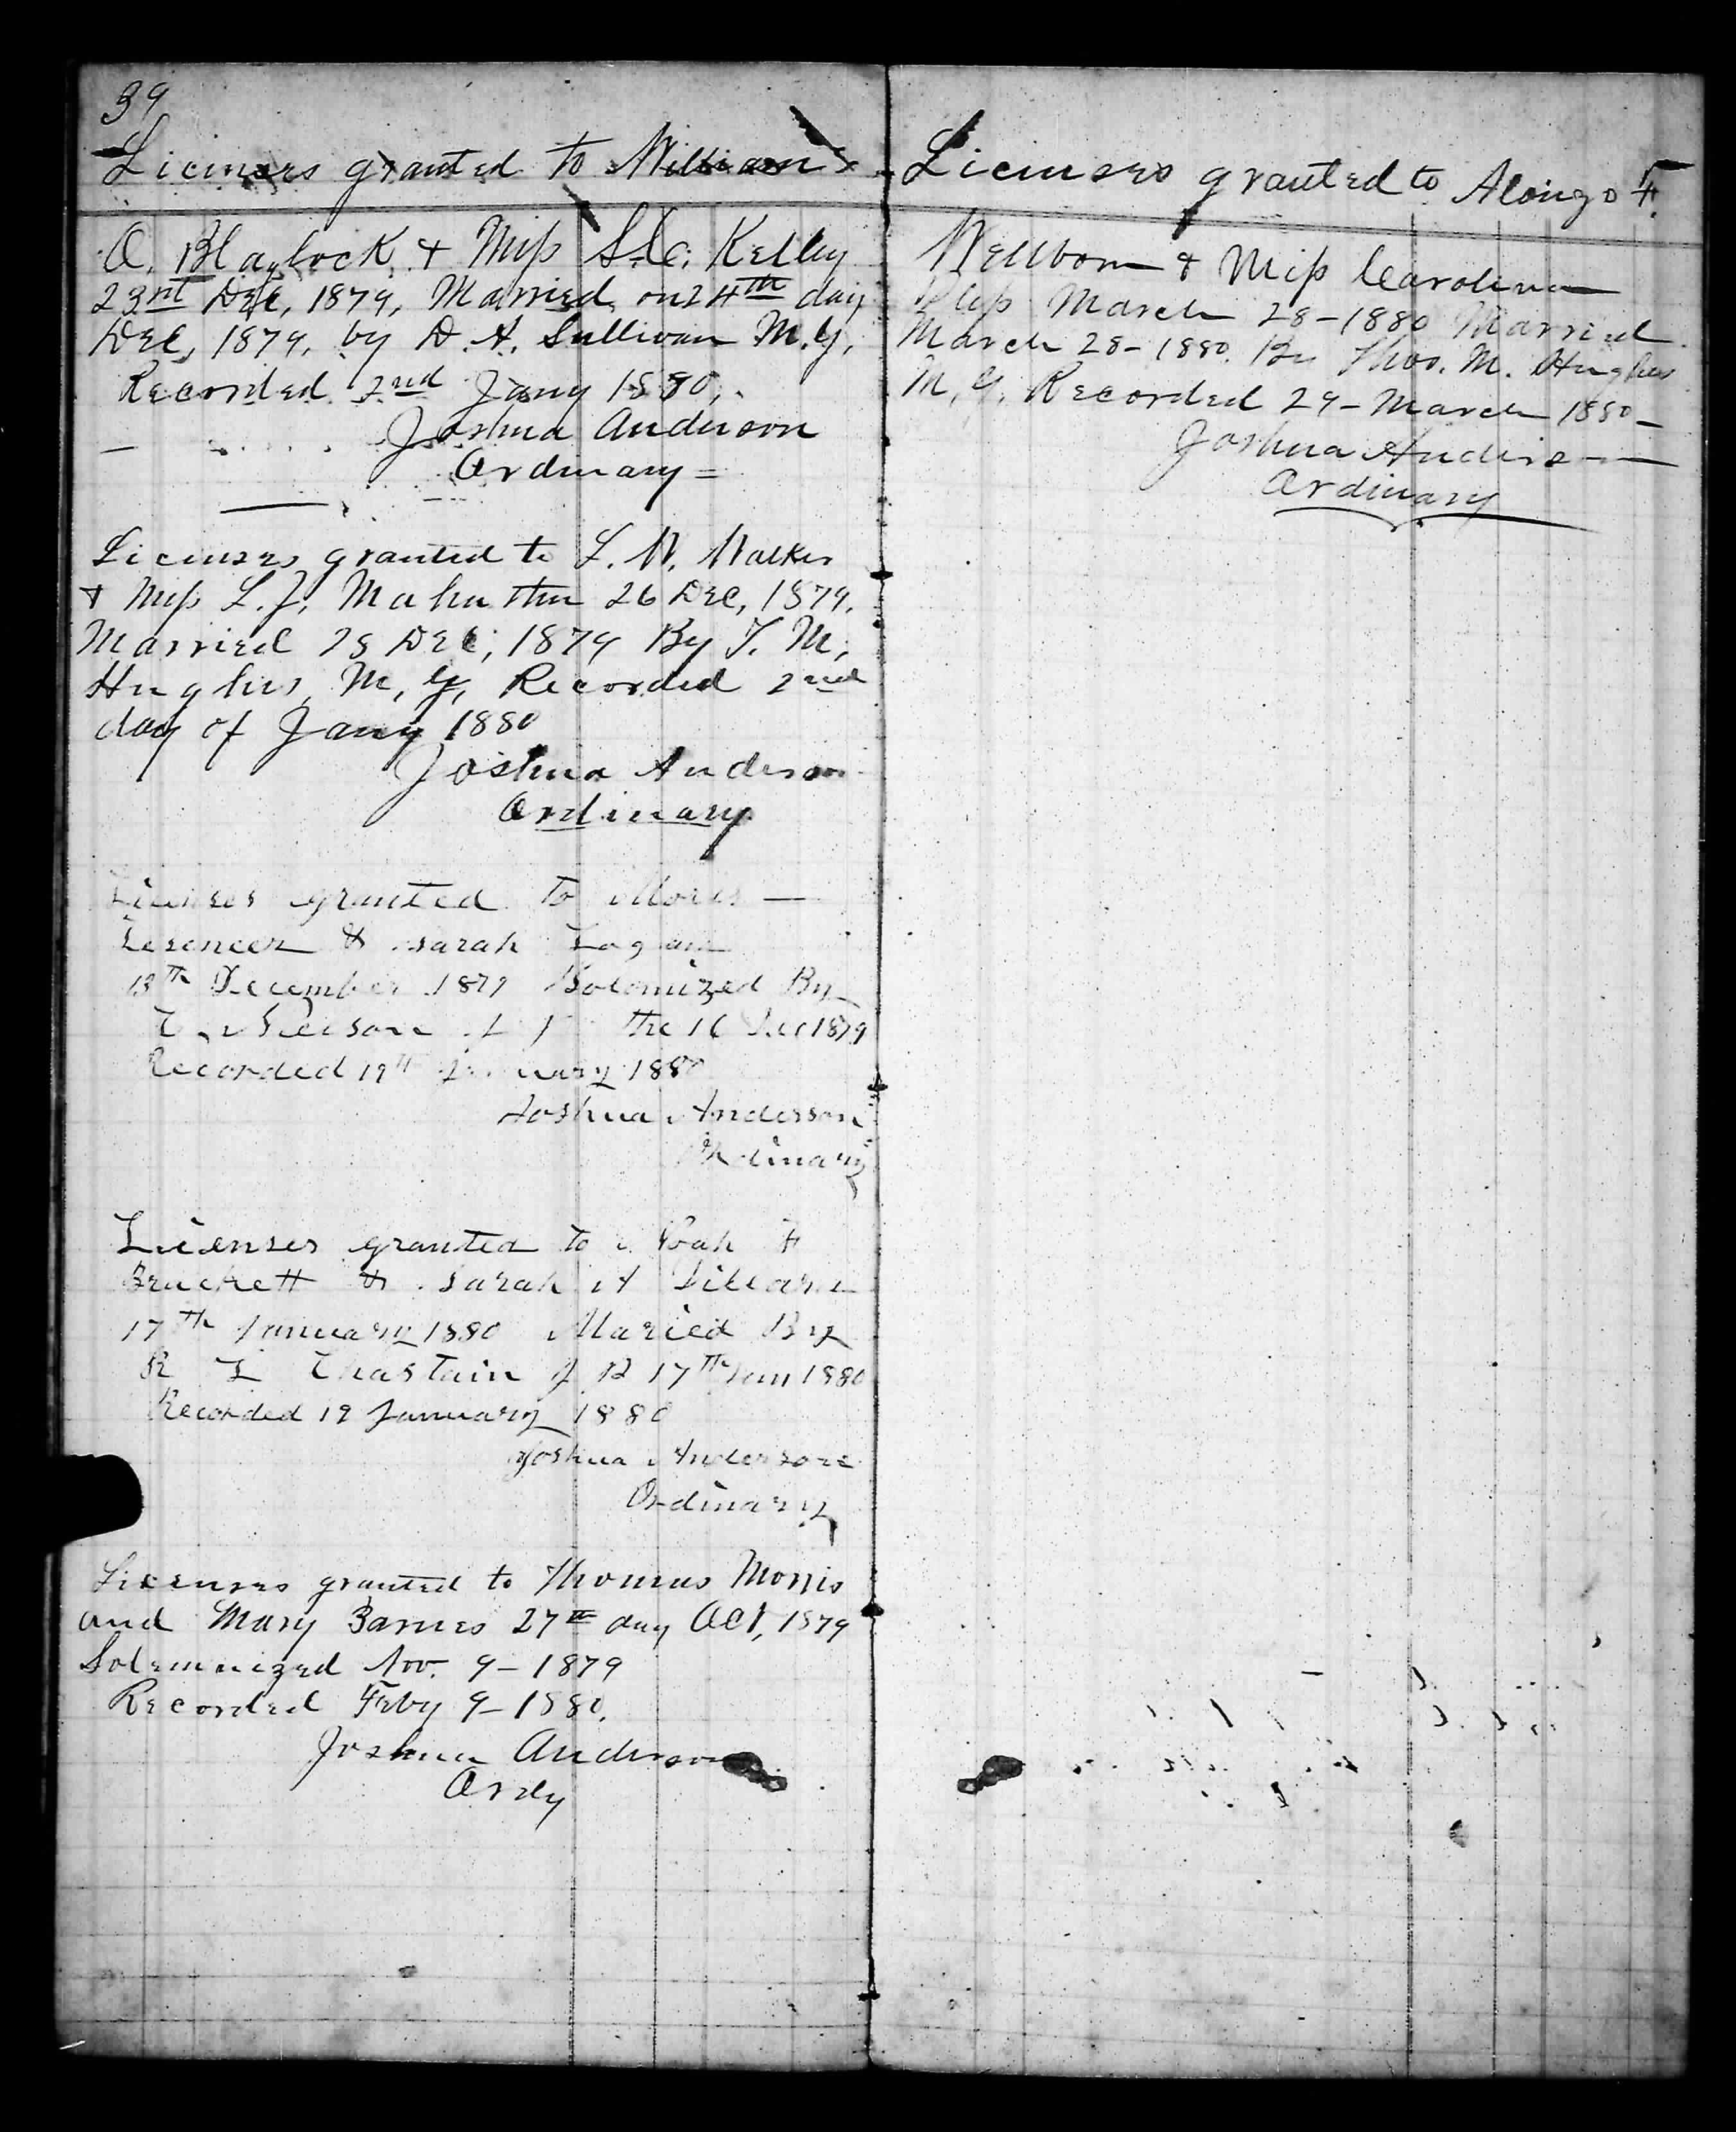 39
Licinsers granted to William
A. Blaylock & Miss S. C. Kelley
23rd Dec, 1879, Married on 24th day
Dec, 1879, by D. A. Sullivan M.G.
Recorded 2nd Jany 1880,
Joshua Anderson
Ordinary
Licinses granted to L. W. Walker
& Miss L. J. 26 Dec, 1879,
Married 28 Dec, 1879 By T. M.
Hughes, M, G, Recorded 2nd
day of Jany 1880
Joshua Anderson
Ordinary
Licenses granted to
& Sarah Logan
13th December 1879 Solomized By
the 16 Dec 1879
Recorded 19th January 1880
Joshua Anderson
Ordinary
Licenses granted to Noah F
Brackett & Sarah A
17th January 1880 Maried By
R L Chastain J P 17th Jan 1880
Recorded 19 January 1880
Joshua Anderson
Ordinary
Licenses granted to Thomas Morris
and Mary Barnes 27th day Oct, 1879
Solemnized Nov. 9 - 1879
Recorded Feby 9 - 1880.
Joshua Anderson
Ordy
Licinsers granted to Alonzo F.
Wellborn & Miss Carolina
March 28 - 1880 Married
March 28 - 1880. By Thos. M. Hughes
M, G, Recorded 29 - March 1880 -
Joshua Anderson
Ordinary